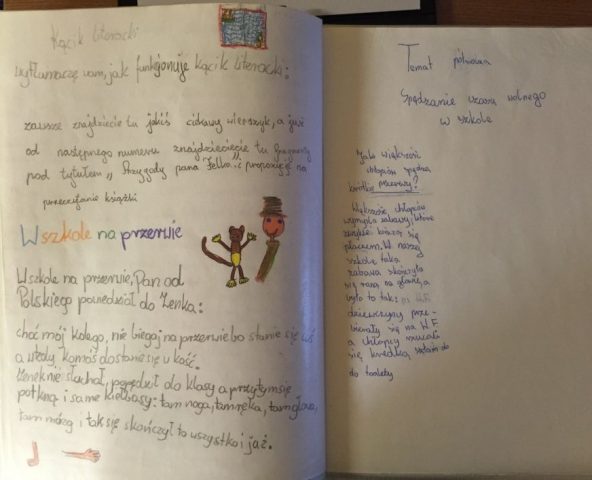 Kącik literacki
wytłumaczę wam, jak funkcjonuje kącik literacki:
zawsze znajdziecie tu jakiś ciekawy wierszyk, a już
od następnego numeru znajdziecie tu fragmenty
pod tytułem „Przygody pana Felka” i propozycję na
przeczytanie książki
W szkole na przerwie
W szkole na przerwie, Pan od
Polskiego powiedział do Zenka:
choć mój kolego, nie biegaj na przerwie bo stanie się coś
a wtedy komoś dostanie się w kość.
Zenek nie słuchał, popędził do klasy a przytym się
potknął i same kiełbasy: tam noga, tam ręka, tam głowa,
tam mózg i tak się skończył to wszystko i już.
Temat półroczna
Spędzanie czasu wolnego
w szkole
Jak większość
chłopców spędza
krótkie przerwy?
Większość chłopców
wymyśla zabawy, które
zwykle kończą się
płaczem. W naszej
szkole taka
zabawa skończyła
się raną na głowie, a
było to tak:
dziewczyny prze-
bierały się na WF
a chłopcy rzucali
się kredką
do toalety